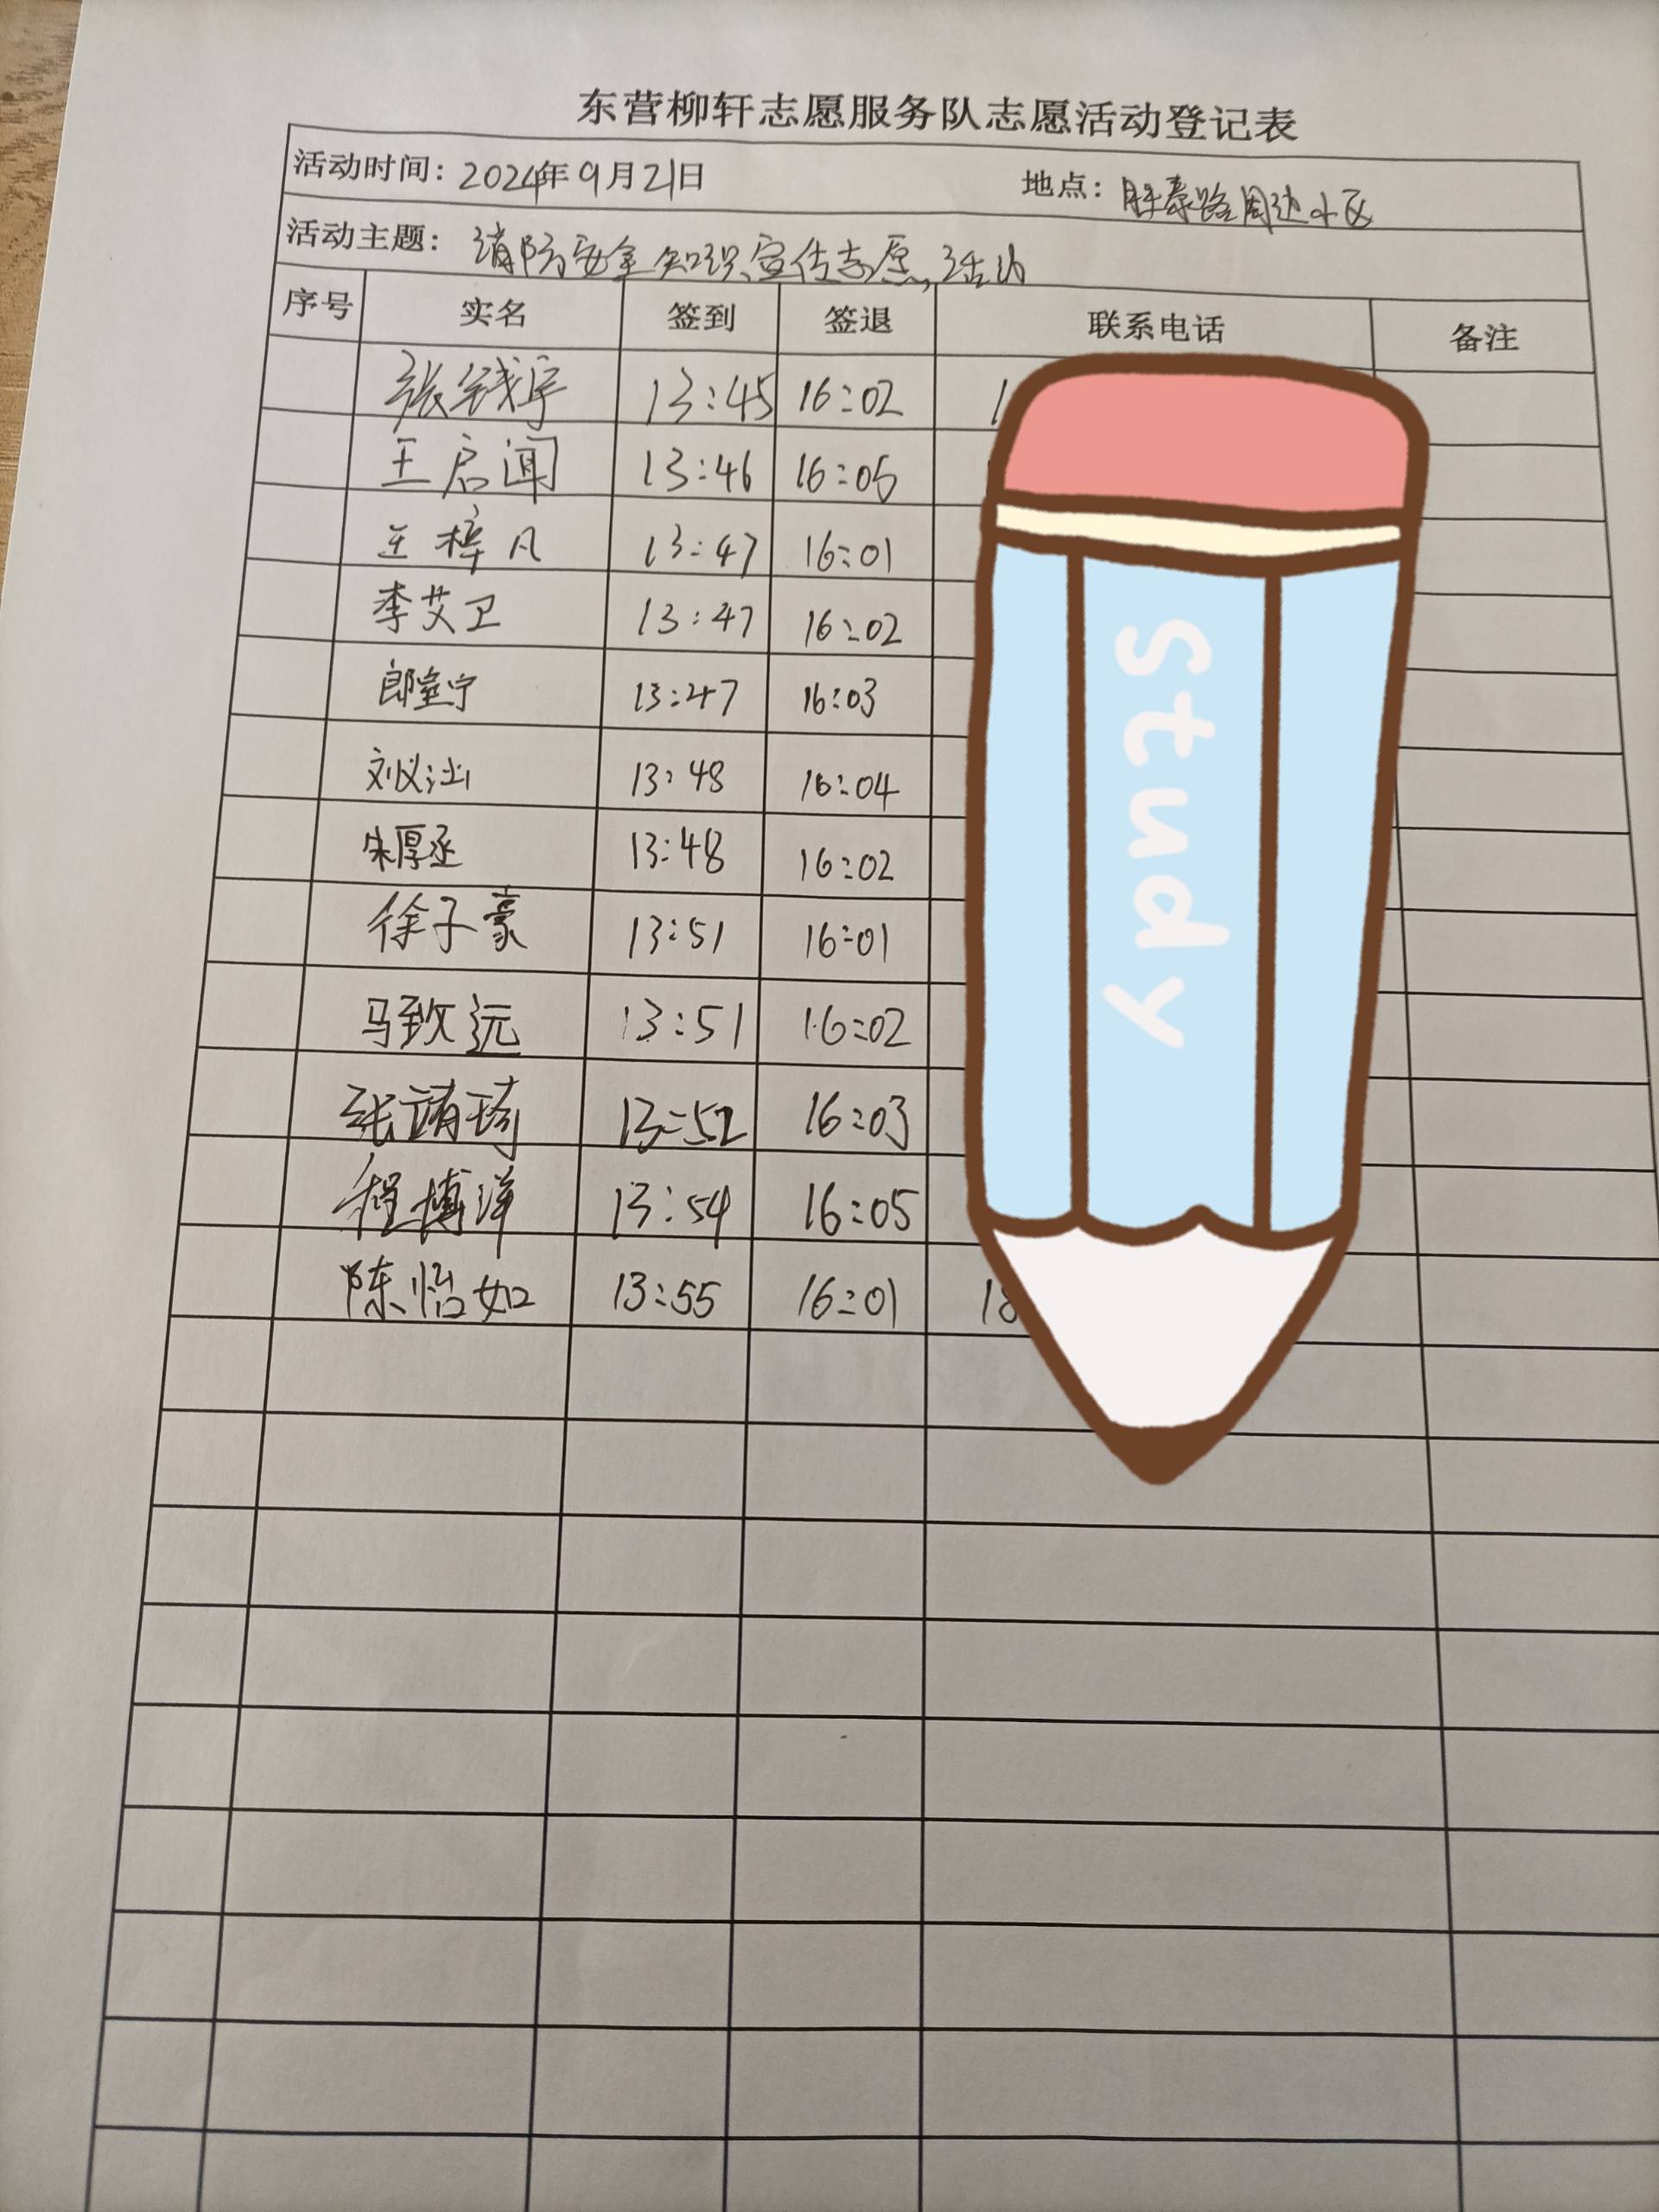 东营柳轩志愿服务队志愿活动登记表
活动时间：2024年9月21日 地点：胜泰路周边小区
活动主题：消防安全知识宣传志愿活动
序号 实名 签到 签退 联系电话 备注
张钱宇 13:45 16:02 1
王启闻 13:46 16:05
王梓凡 13:47 16:01
李艾卫 13:47 16:02
郎 宁 13:47 16:03
刘 13:48 16:04
朱厚丞 13:48 16:02
徐子豪 13:51 16:01
马致远 13:51 16:02
张靖琦 13:52 16:03
程博洋 13:54 16:05
陈怡如 13:55 16:01 18
Study